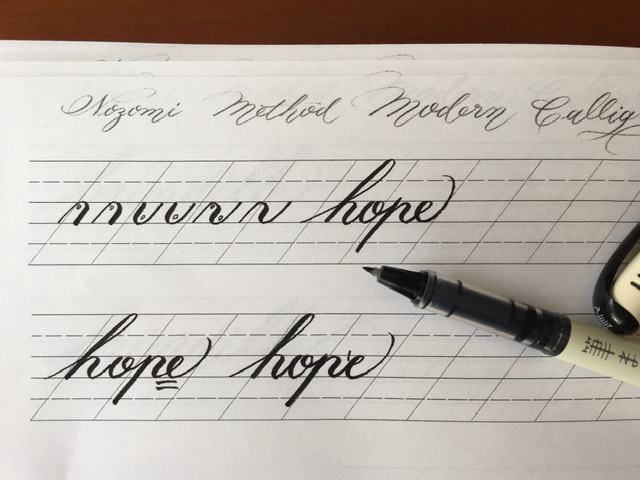 Nozomi Method Modern Callig
hope
hope hope